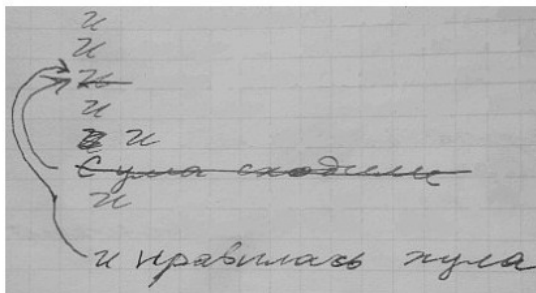 и
и
и
и
и
Сума сходили
и
и нравилась жула